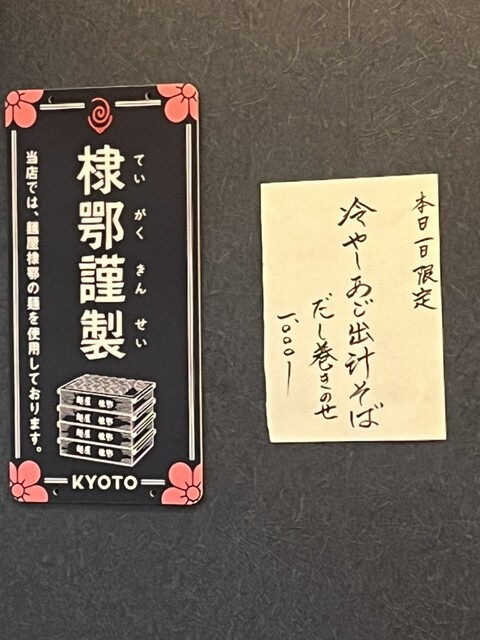 棣鄂謹製
てい がく きん せい
当店では、麺屋棣鄂の麺を使用しております。
麺屋 棣鄂
麺屋 棣鄂
麺屋 棣鄂
麺屋 棣鄂
KYOTO
本日一日限定
冷やしあご出汁そば
だし巻きのせ
一、〇〇〇ー